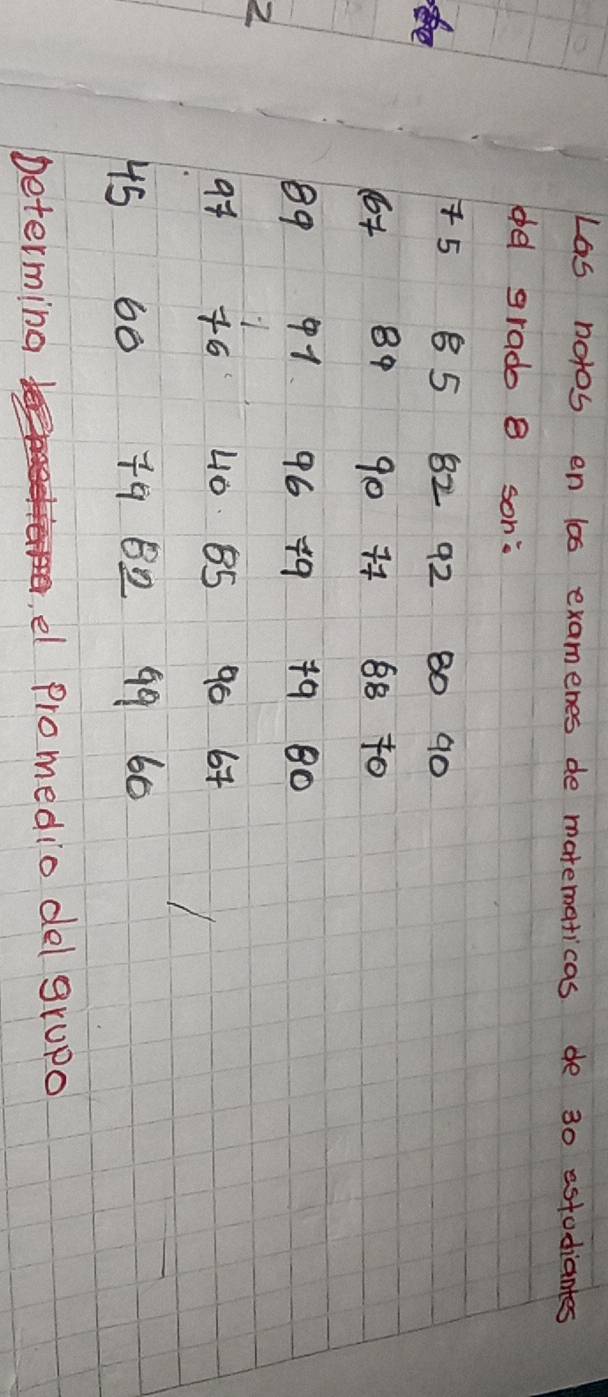 Las notas en los examenes de matematicas de 30 estudiantes
del grado 8 son:
75 85 82 92 80 90
67 89 90 77 88 70
89 91 96 79 79 80
97 76 40 85 90 67
45 60 79 82 99 60
Determina el Promedio del grupo
2